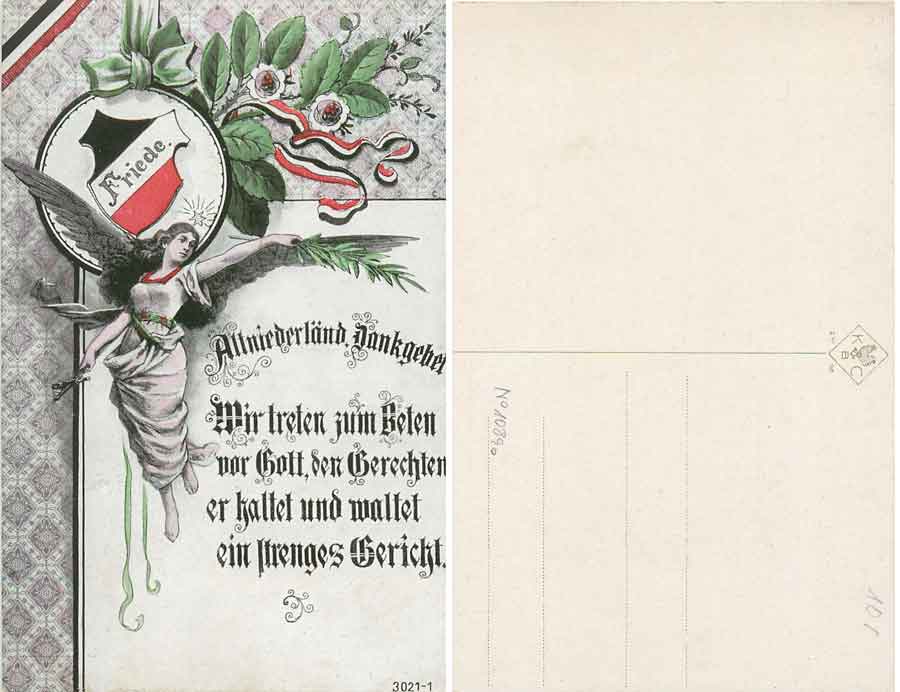 Friede.
Altniederländ. Dankgebet
Wir treten zum Beten
vor Gott, den Gerechten
er haltet und waltet
ein strenges Gericht.
3021-1
K
B C
No 1089a
101